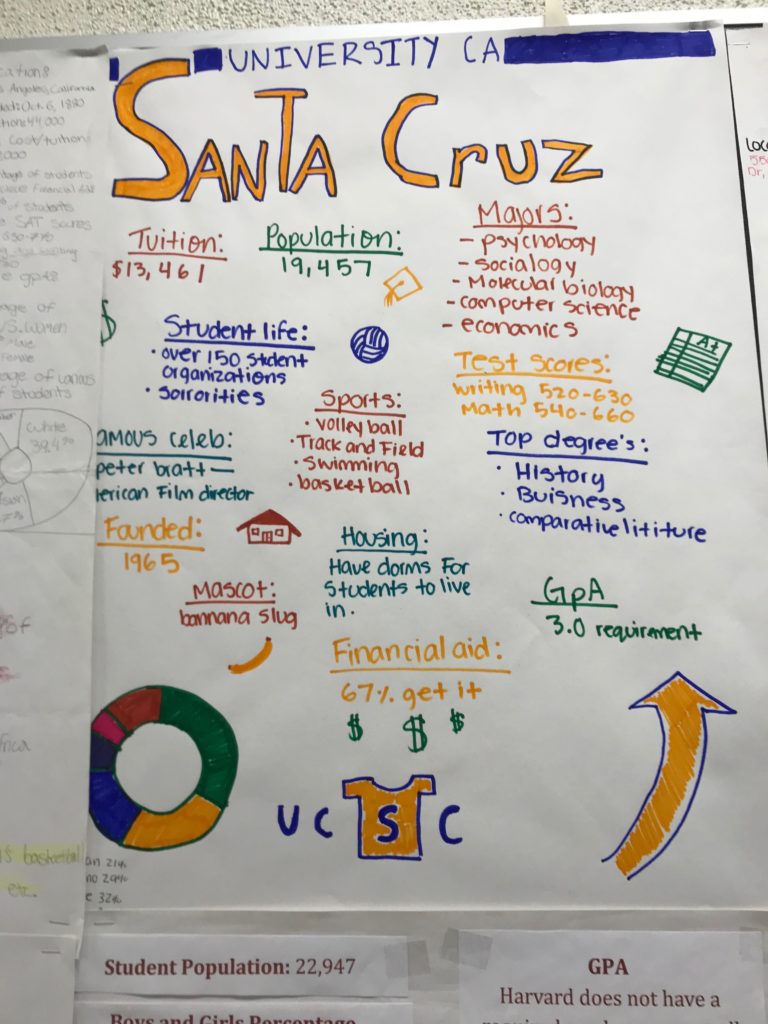 UNIVERSITY CA
SANTA Cruz
Tuition:
$13,461
Population:
19,457
Majors:
- psychology
- socialogy
- Molecular biology
- computer science
- economics
Student life:
• over 150 stdent
organizations
• soirorities
A+
Test scores:
writing 520-630
Math 540-660
Sports:
• volley ball
• Track and Field
• Swimming
• basketball
amous celeb:
peter bratt —
erican Film director
Top degree's:
• History
• Buisness
• comparative lititure
Founded:
1965
Housing:
Have dorms For
Students to live
in.
Mascot:
bannana slug
GpA
3.0 requirement
Financial aid:
67% get it
$ $ $
UC S C
an 21%
no 29%
e 32%
cations
Angeles, California
Oct. 6, 1880
44,000
Cost/tuition
of students
financial aid
of students
SAT scores
age of
Women
Female
age of various
f students
White
38.4%
of
frica
basketball
etc.
Loc
Dr,
Student Population: 22,947
Boys and Girls Percentage
GPA
Harvard does not have a